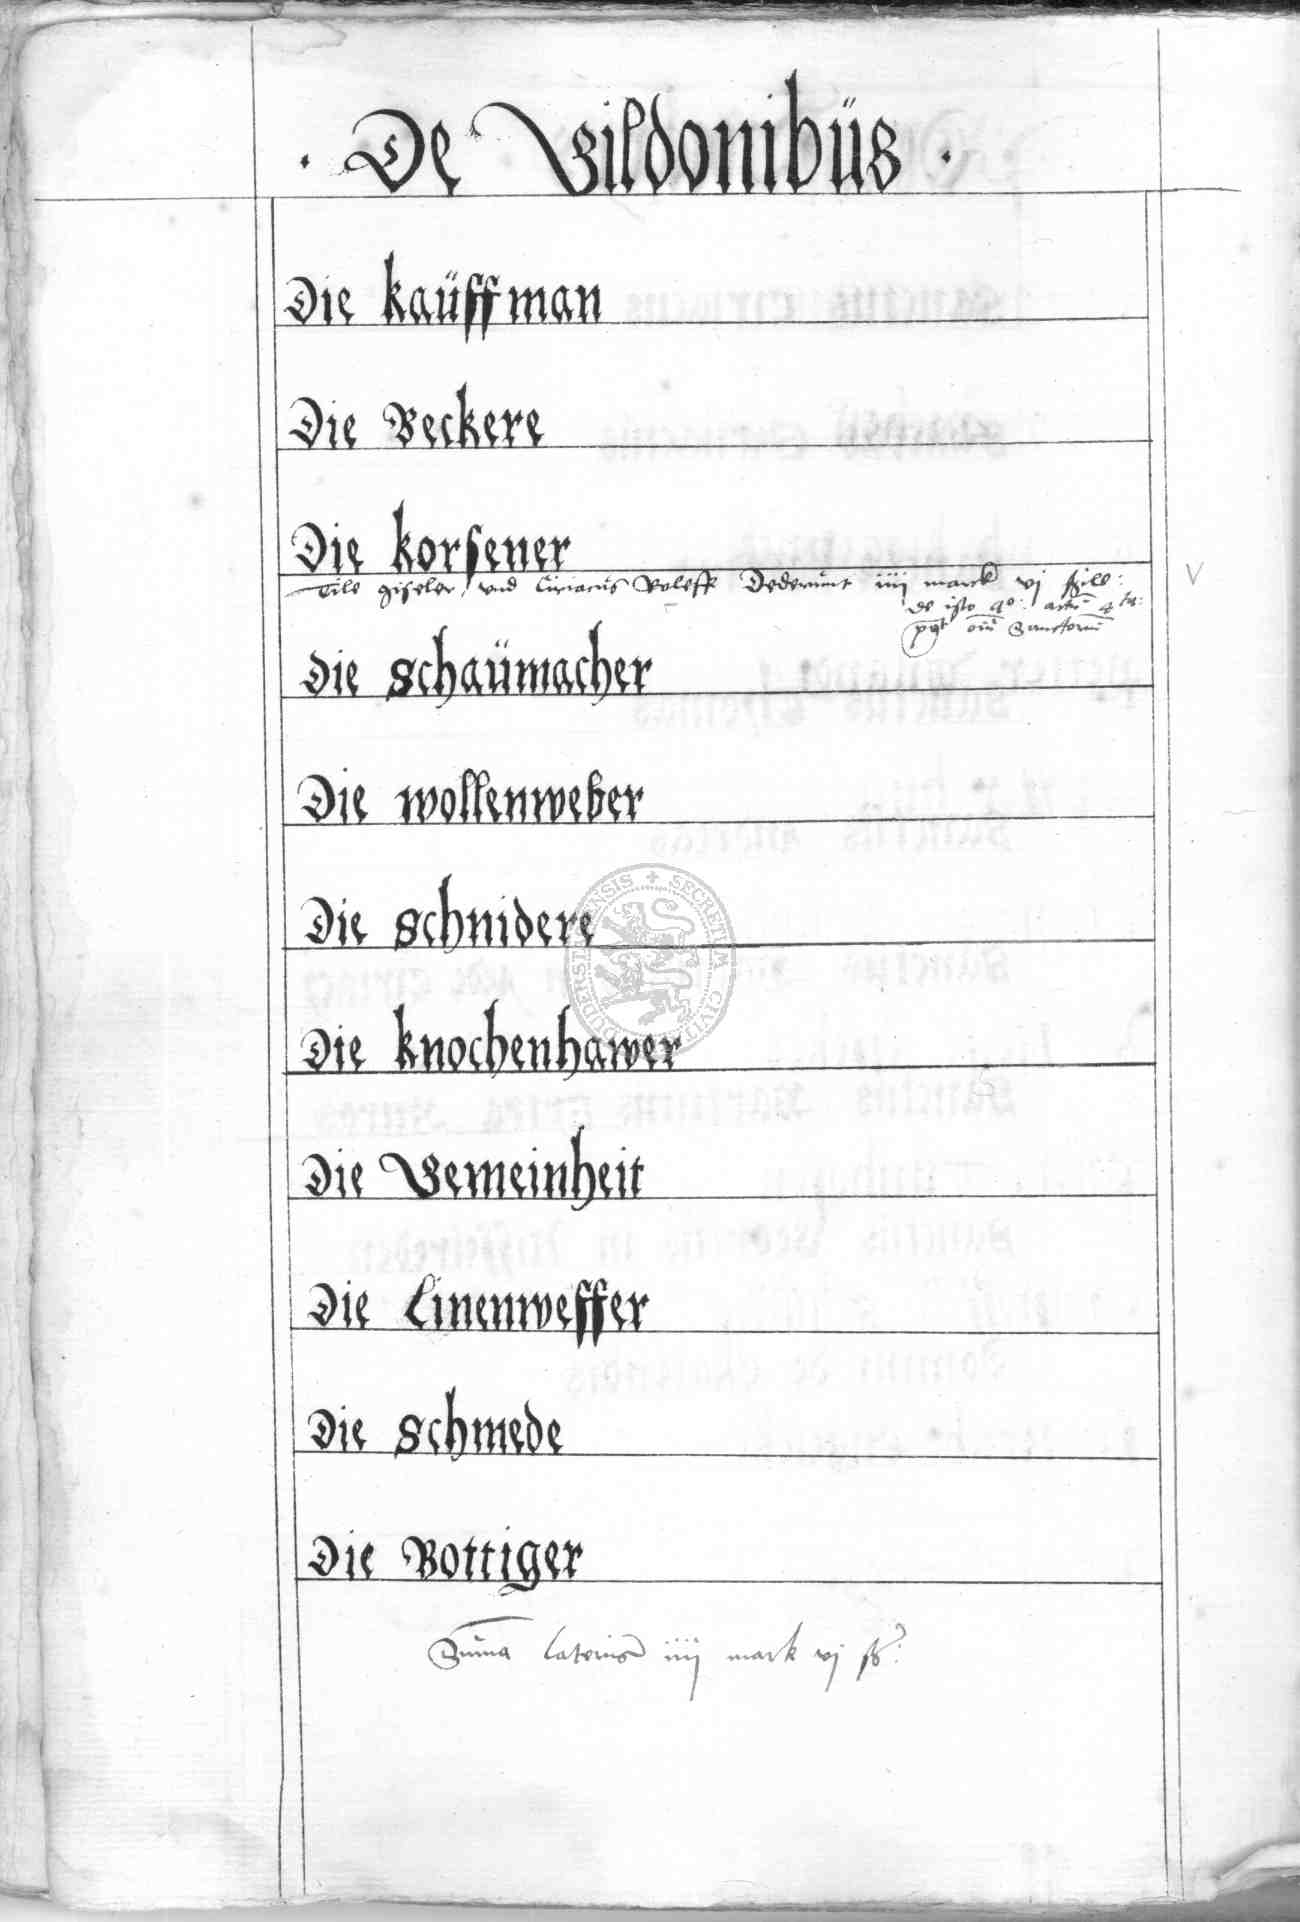 · De Gildonibüs ·
Die kaüffman
Die Beckere
Die korsener
Tile giseler und Ciriacus Roleff Dederunt iiij marck vj
de isto
Sanctorum
Die schaümacher
Die wollenweber
Die schnidere
Die knochenhawer
Die Gemeinheit
Die Linenweffer
Die schmede
Die Bottiger
Suma lateris iiij mark vj
SECRETUM CIVIT DUDERSTADENSIS